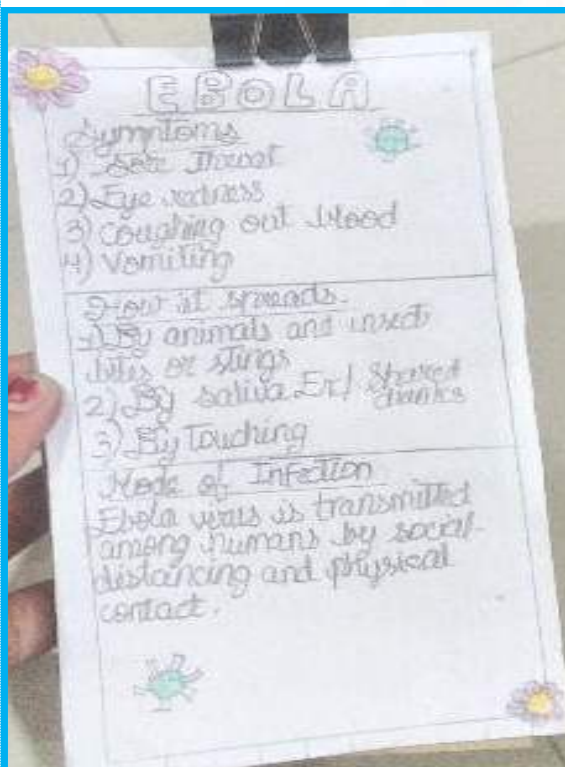 EBOLA
Symptoms
1) Sore Throat
2) Eye redness
3) Coughing out blood
4) Vomiting
How it spreads.
1) By animals and insect
bites or stings
2) By saliva Ex/ Shared
drinks
3) By Touching
Mode of Infection
Ebola virus is transmitted
among humans by social-
distancing and physical
contact.